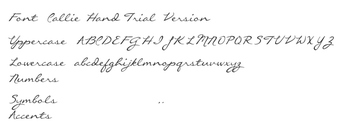 Font Callie Hand Trial Version
Uppercase ABCDEFGHIJKLMNOPQRSTUVWXYZ
Lowercase abcdefghijklmnopqrstuvwxyz
Numbers
Symbols ..
Accents